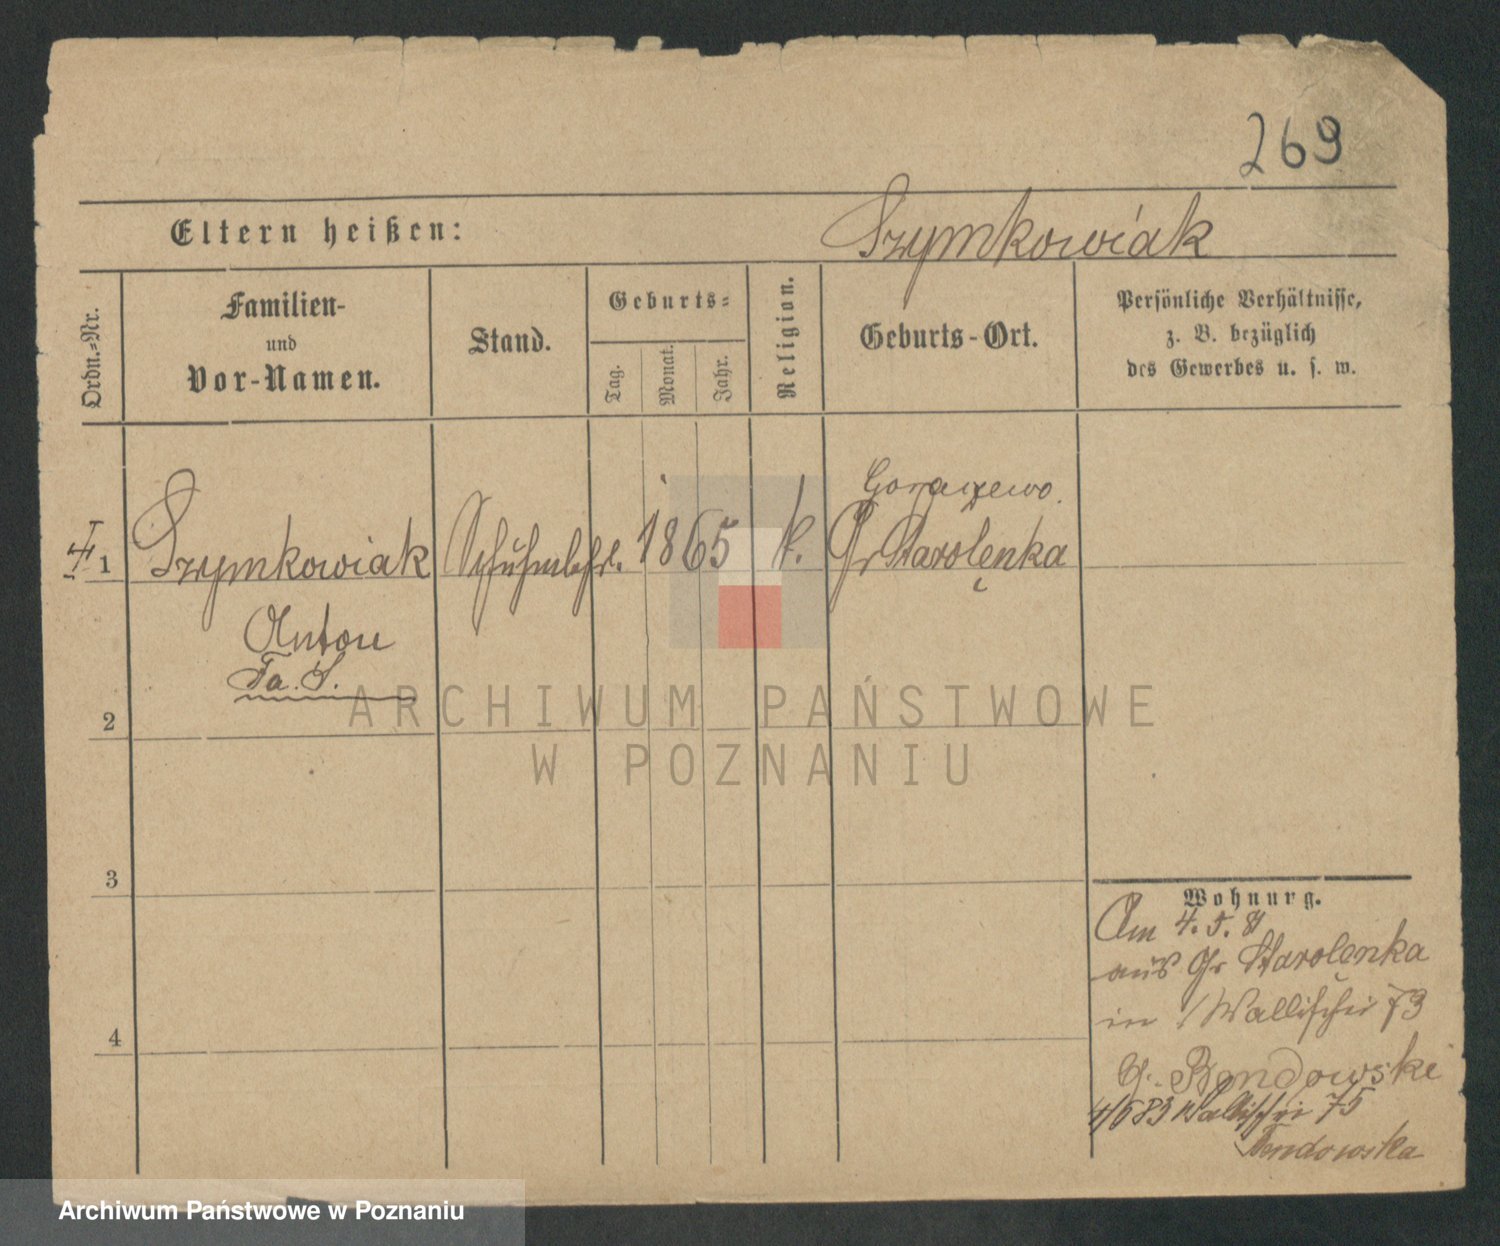 269
Eltern heißen: Szymkowiak
Ordn.-Nr.
Familien-
und
Vor-Namen.
Stand.
Geburts-
Tag.
Monat.
Jahr.
Religion.
Geburts-Ort.
Persönliche Verhältnisse,
z. B. bezüglich
des Gewerbes u. s. w.
1
Szymkowiak
Anton
Schuhm.
1865
k.
Gr Starolęnka
2
3
4
Wohnung.
Am 4. 5. 81
aus Gr Starolęnka
in Wallischei 73
Bendowski
Wallischei 75
Bendowska
ARCHIWUM PAŃSTWOWE
W POZNANIU
Archiwum Państwowe w Poznaniu